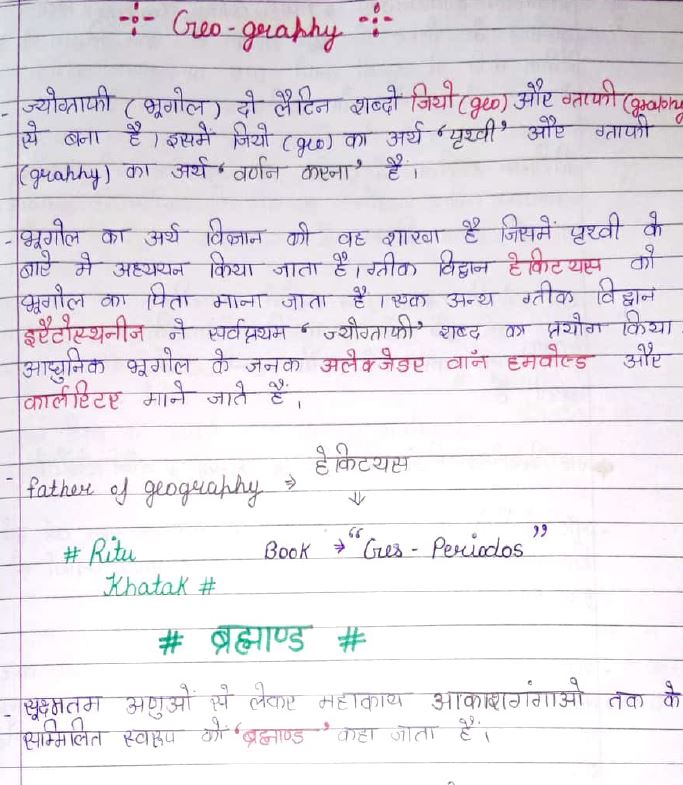 Geo-graphy
- ज्योग्राफी (भूगोल) दो लैटिन शब्दों जियो (geo) और ग्राफी (graphy)
से बना है। इसमें जियो (geo) का अर्थ 'पृथ्वी' और ग्राफी
(graphy) का अर्थ 'वर्णन करना' है।
- भूगोल का अर्थ विज्ञान की वह शाखा है जिसमें पृथ्वी के
बारे मे अध्ययन किया जाता है। ग्रीक विद्वान हेकिटयस को
भूगोल का पिता माना जाता है। एक अन्य ग्रीक विद्वान
इरैटोस्थनीज ने सर्वप्रथम 'ज्योग्राफी' शब्द का प्रयोग किया
आधुनिक भूगोल के जनक अलेक्जेडर वॉन हमवोल्ड और
कार्लरिटर माने जाते हैं।
- father of geography ⇒ हेकिटयस
⇓
# Ritu Book → "Ges - Periodos"
Khatak #
# ब्रह्माण्ड #
- सूक्ष्मतम अणुओं से लेकर महाकाय आकाशगंगाओ तक के
सम्मिलित स्वरूप को 'ब्रह्माण्ड' कहा जाता है।